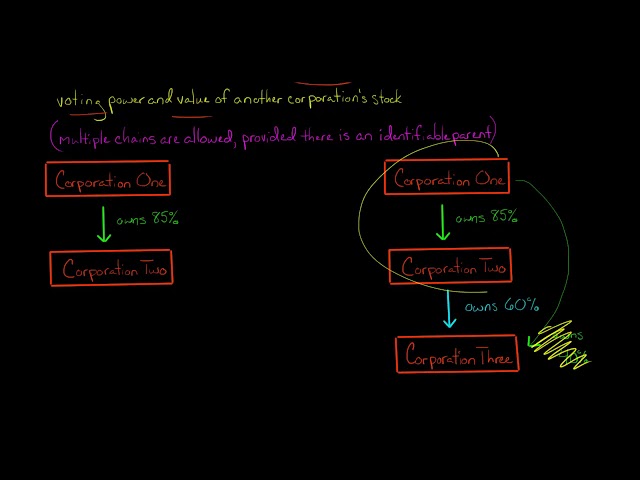 voting power and value of another corporation's stock
(multiple chains are allowed, provided there is an identifiable parent)
Corporation One
owns 85%
Corporation Two
Corporation One
owns 85%
Corporation Two
owns 60%
Corporation Three